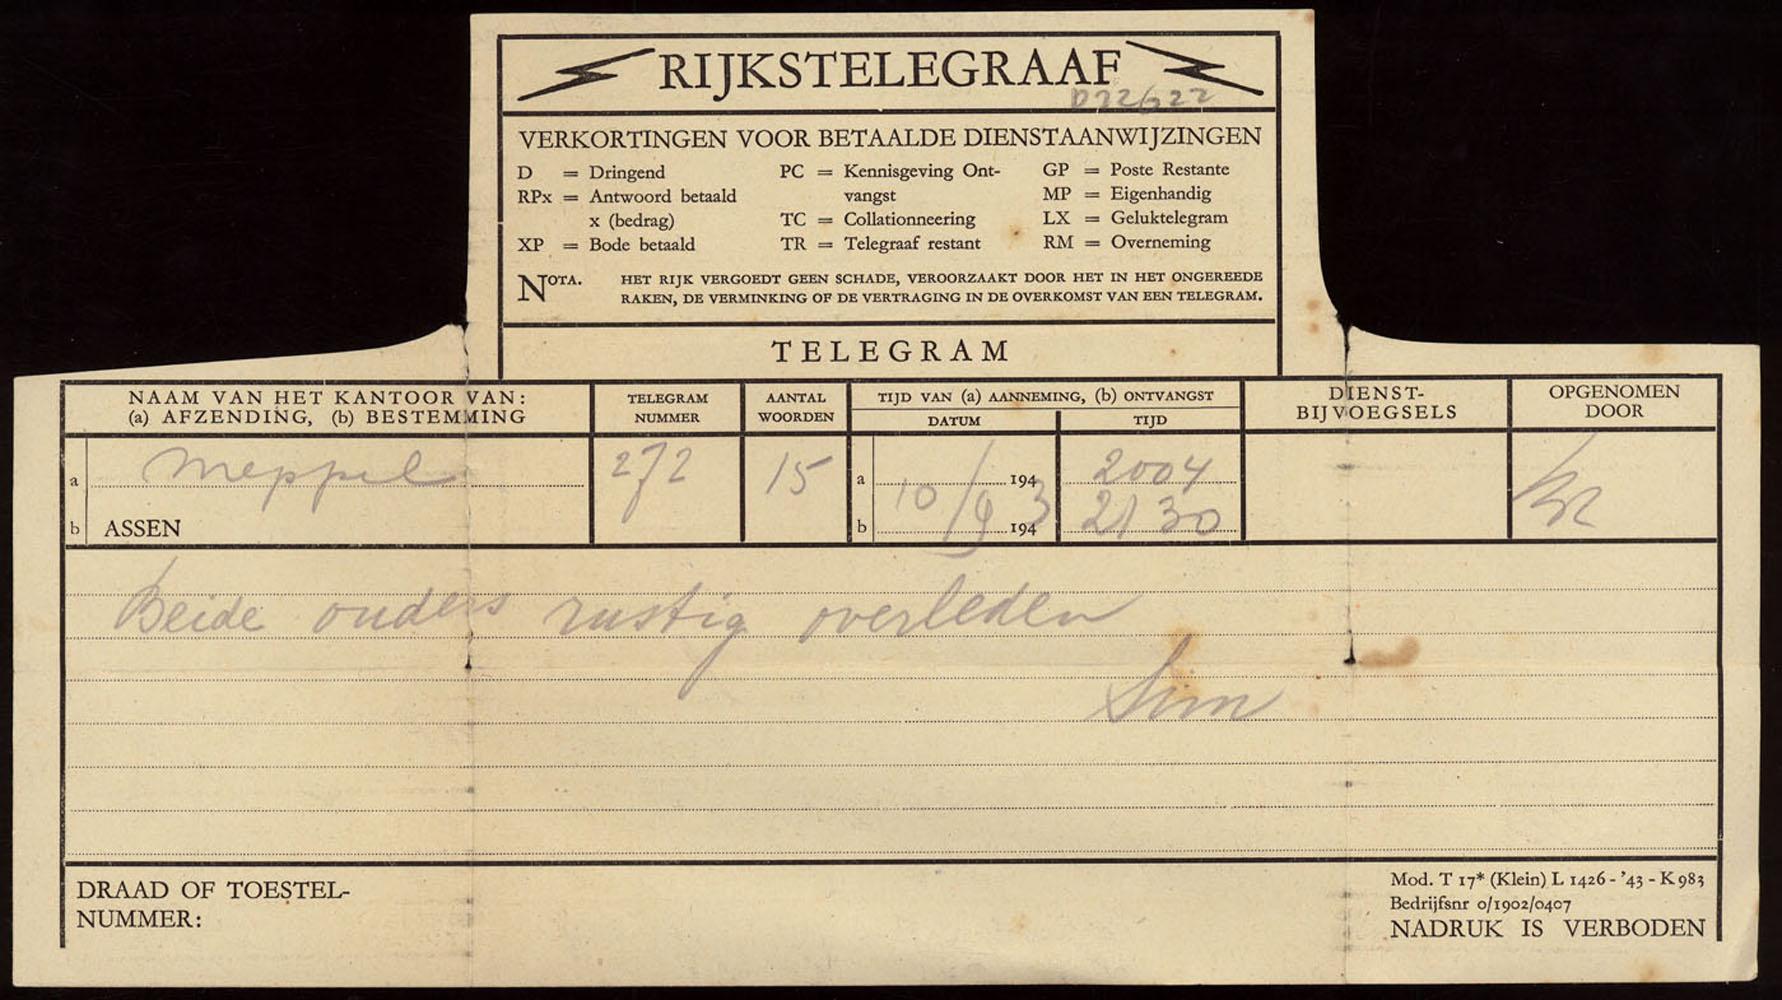 RIJKSTELEGRAAF
D722G22
VERKORTINGEN VOOR BETAALDE DIENSTAANWIJZINGEN
D = Dringend
RPx = Antwoord betaald
x (bedrag)
XP = Bode betaald
PC = Kennisgeving Ont-
vangst
TC = Collationneering
TR = Telegraaf restant
GP = Poste Restante
MP = Eigenhandig
LX = Geluktelegram
RM = Overneming
NOTA. HET RIJK VERGOEDT GEEN SCHADE, VEROORZAAKT DOOR HET IN HET ONGEREEDE
RAKEN, DE VERMINKING OF DE VERTRAGING IN DE OVERKOMST VAN EEN TELEGRAM.
TELEGRAM
NAAM VAN HET KANTOOR VAN:
(a) AFZENDING, (b) BESTEMMING
TELEGRAM
NUMMER
AANTAL
WOORDEN
TIJD VAN (a) AANNEMING, (b) ONTVANGST
DATUM TIJD
DIENST-
BIJVOEGSELS
OPGENOMEN
DOOR
a Meppel 272 15 a 194 2004
b ASSEN b 10/9 1943 2130
Beide ouders rustig overleden
Sim
DRAAD OF TOESTEL-
NUMMER:
Mod. T 17* (Klein) L 1426 - '43 - K 983
Bedrijfsnr 0/1902/0407
NADRUK IS VERBODEN